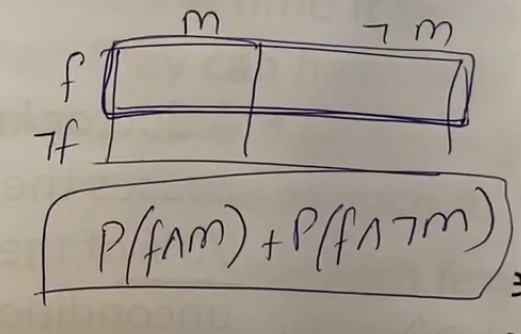 m ¬ m
f
¬f
P(f∧m) + P(f∧¬m)